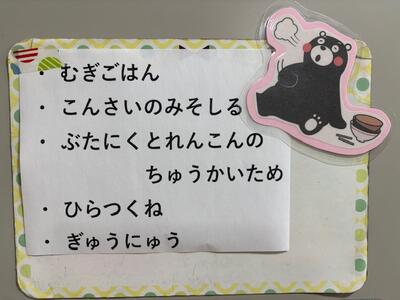 ・ むぎごはん
・ こんさいのみそしる
・ ぶたにくとれんこんの
ちゅうかいため
・ ひらつくね
・ ぎゅうにゅう